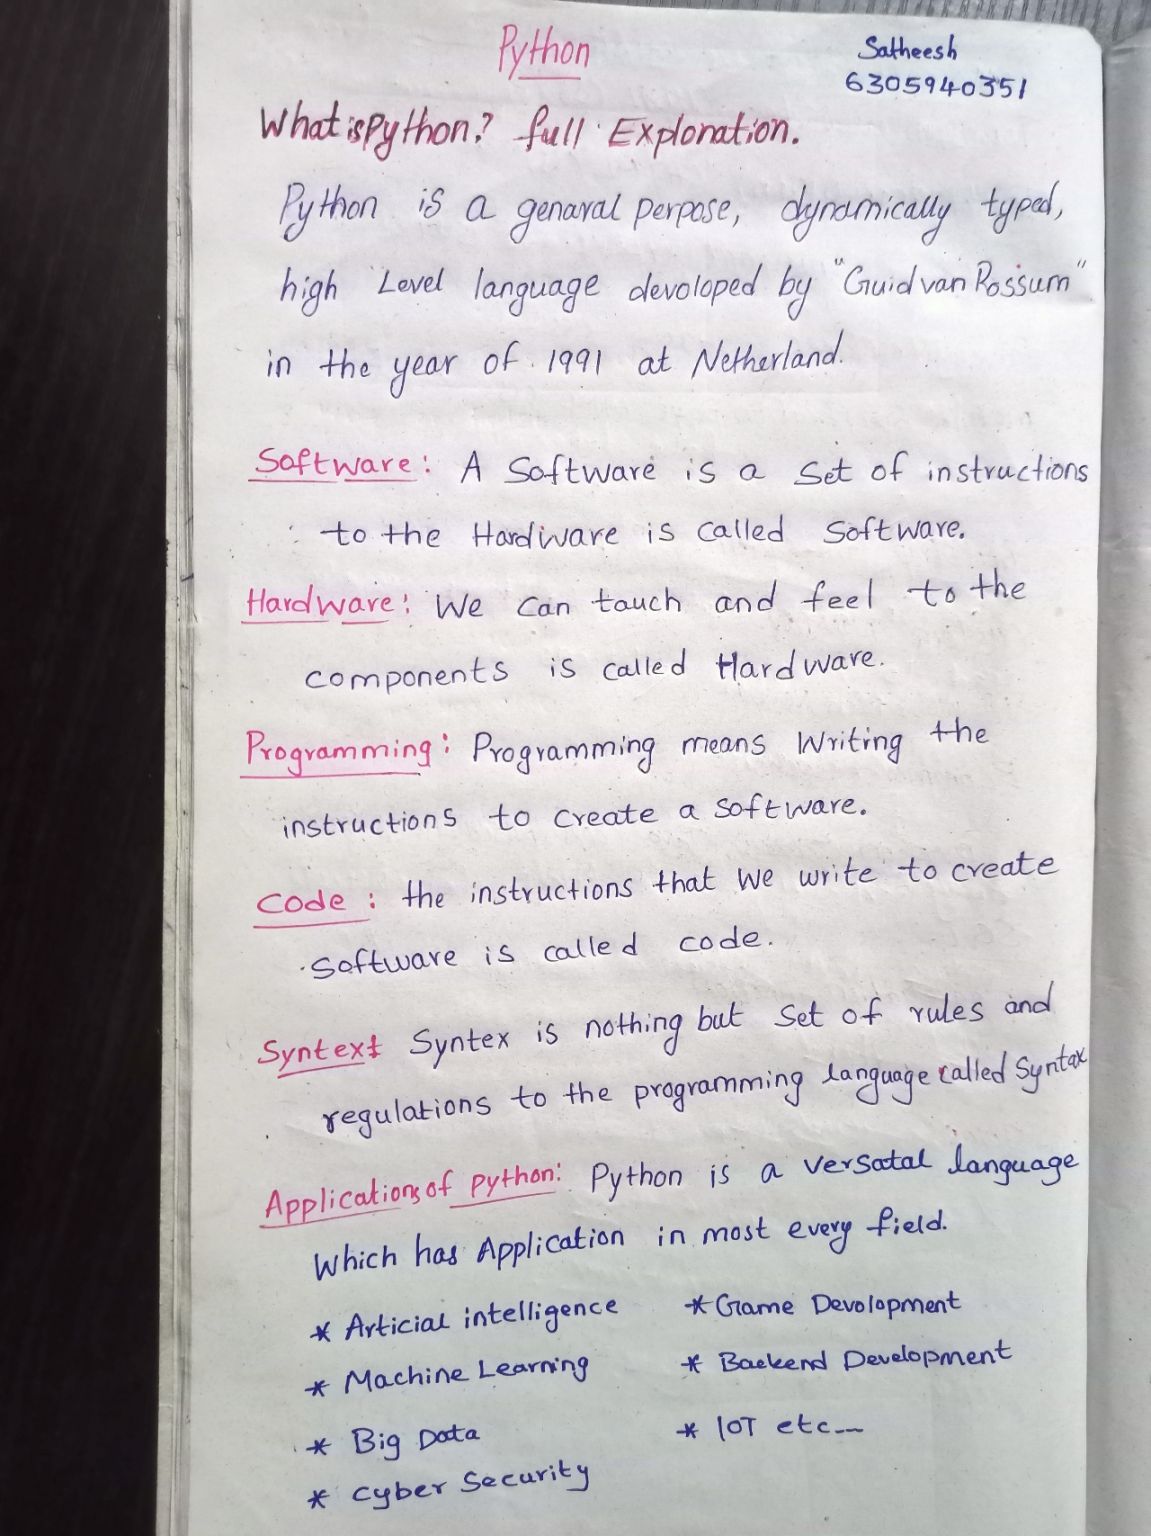 Python
Satheesh
6305940351
What is Python? full Explonation.
Python is a genaral perpose, dynamically typed,
high Level language devoloped by "Guid van Rossum"
in the year of 1991 at Netherland.
Software: A Software is a set of instructions
to the Hardware is called Software.
Hardware: We can tauch and feel to the
components is called Hardware.
Programming: Programming means Writing the
instructions to create a software.
Code: the instructions that we write to create
Software is called code.
Syntext Syntex is nothing but Set of rules and
regulations to the programming language called Syntax
Applications of python: Python is a versatal language
Which has Application in most every field.
* Articial intelligence
* Game Devolopment
* Machine Learning
* Backend Development
* Big Data
* IOT etc---
* Cyber Security